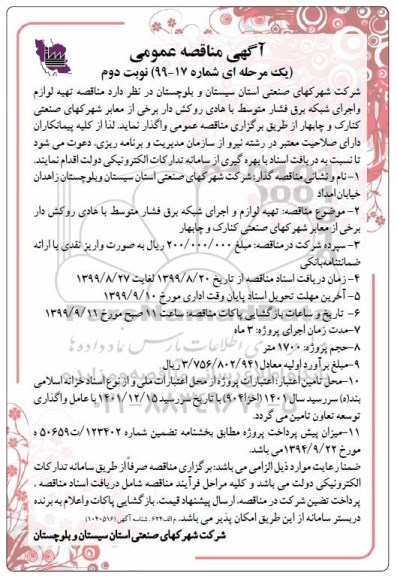 آگهی مناقصه عمومی
(یک مرحله ای شماره ۱۷-۹۹) نوبت دوم
شرکت شهرکهای صنعتی استان سیستان و بلوچستان در نظر دارد مناقصه تهیه لوازم
واجرای شبکه برق فشار متوسط با هادی روکش دار برخی از معابر شهرکهای صنعتی
کنارک و چابهار از طریق برگزاری مناقصه عمومی واگذار نماید. لذا از کلیه پیمانکاران
دارای صلاحیت معتبر در رشته نیرو از سازمان مدیریت و برنامه ریزی، دعوت می شود
تا نسبت به دریافت اسناد با بهره گیری از سامانه تدارکات الکترونیکی دولت اقدام نمایند.
۱-نام و نشانی مناقصه گذار: شرکت شهرکهای صنعتی استان سیستان وبلوچستان زاهدان
خیابان امداد
۲- موضوع مناقصه: تهیه لوازم و اجرای شبکه برق فشار متوسط با هادی روکش دار
برخی از معابر شهرکهای صنعتی کنارک و چابهار
۳- سپرده شرکت در مناقصه: مبلغ ۲۰۰/۰۰۰/۰۰۰ ریال به صورت واریز نقدی یا ارائه
ضمانتنامه‌بانکی
۴- زمان دریافت اسناد مناقصه از تاریخ ۱۳۹۹/۸/۲۰ لغایت ۱۳۹۹/۸/۲۷
۵- آخرین مهلت تحویل اسناد پایان وقت اداری مورخ ۱۳۹۹/۹/۱۰
۶- تاریخ و ساعات بازگشایی پاکات مناقصه: ساعت ۱۱ صبح مورخ ۱۳۹۹/۹/۱۱
۷-مدت زمان اجرای پروژه: ۳ ماه
۸-حجم پروژه: ۱۷۰۰ متر
۹-مبلغ برآورد اولیه معادل ۳/۷۵۶/۸۰۲/۹۴۱ ریال
۱۰-محل تامین اعتبار: اعتبارات پروژه از محل اعتبارات ملی و از نوع اسناد خزانه اسلامی
بند(ه) سررسید سال ۱۴۰۱ (اخزا۹۰۴) با تاریخ سررسید ۱۴۰۱/۱۲/۱۵ با عامل واگذاری
توسعه تعاون تامین می گردد.
۱۱-میزان پیش پرداخت پروژه مطابق بخشنامه تضمین شماره ۱۲۳۴۰۲/ت۵۰۶۵۹ ه
مورخ ۱۳۹۴/۹/۲۲می باشد.
ضمنا رعایت موارد ذیل الزامی می باشد: برگزاری مناقصه صرفاً از طریق سامانه تدارکات
الکترونیکی دولت می باشد و کلیه مراحل فرآیند مناقصه شامل دریافت اسناد مناقصه ،
پرداخت تضین شرکت در مناقصه، ارسال پیشنهاد قیمت، بازگشایی پاکات و اعلام به برنده
در بستر سامانه از این طریق امکان پذیر می باشد. م الف۶۲۴ شناسه آگهی (۱۰۴۰۵۱۶)
شرکت شهرکهای صنعتی استان سیستان و بلوچستان